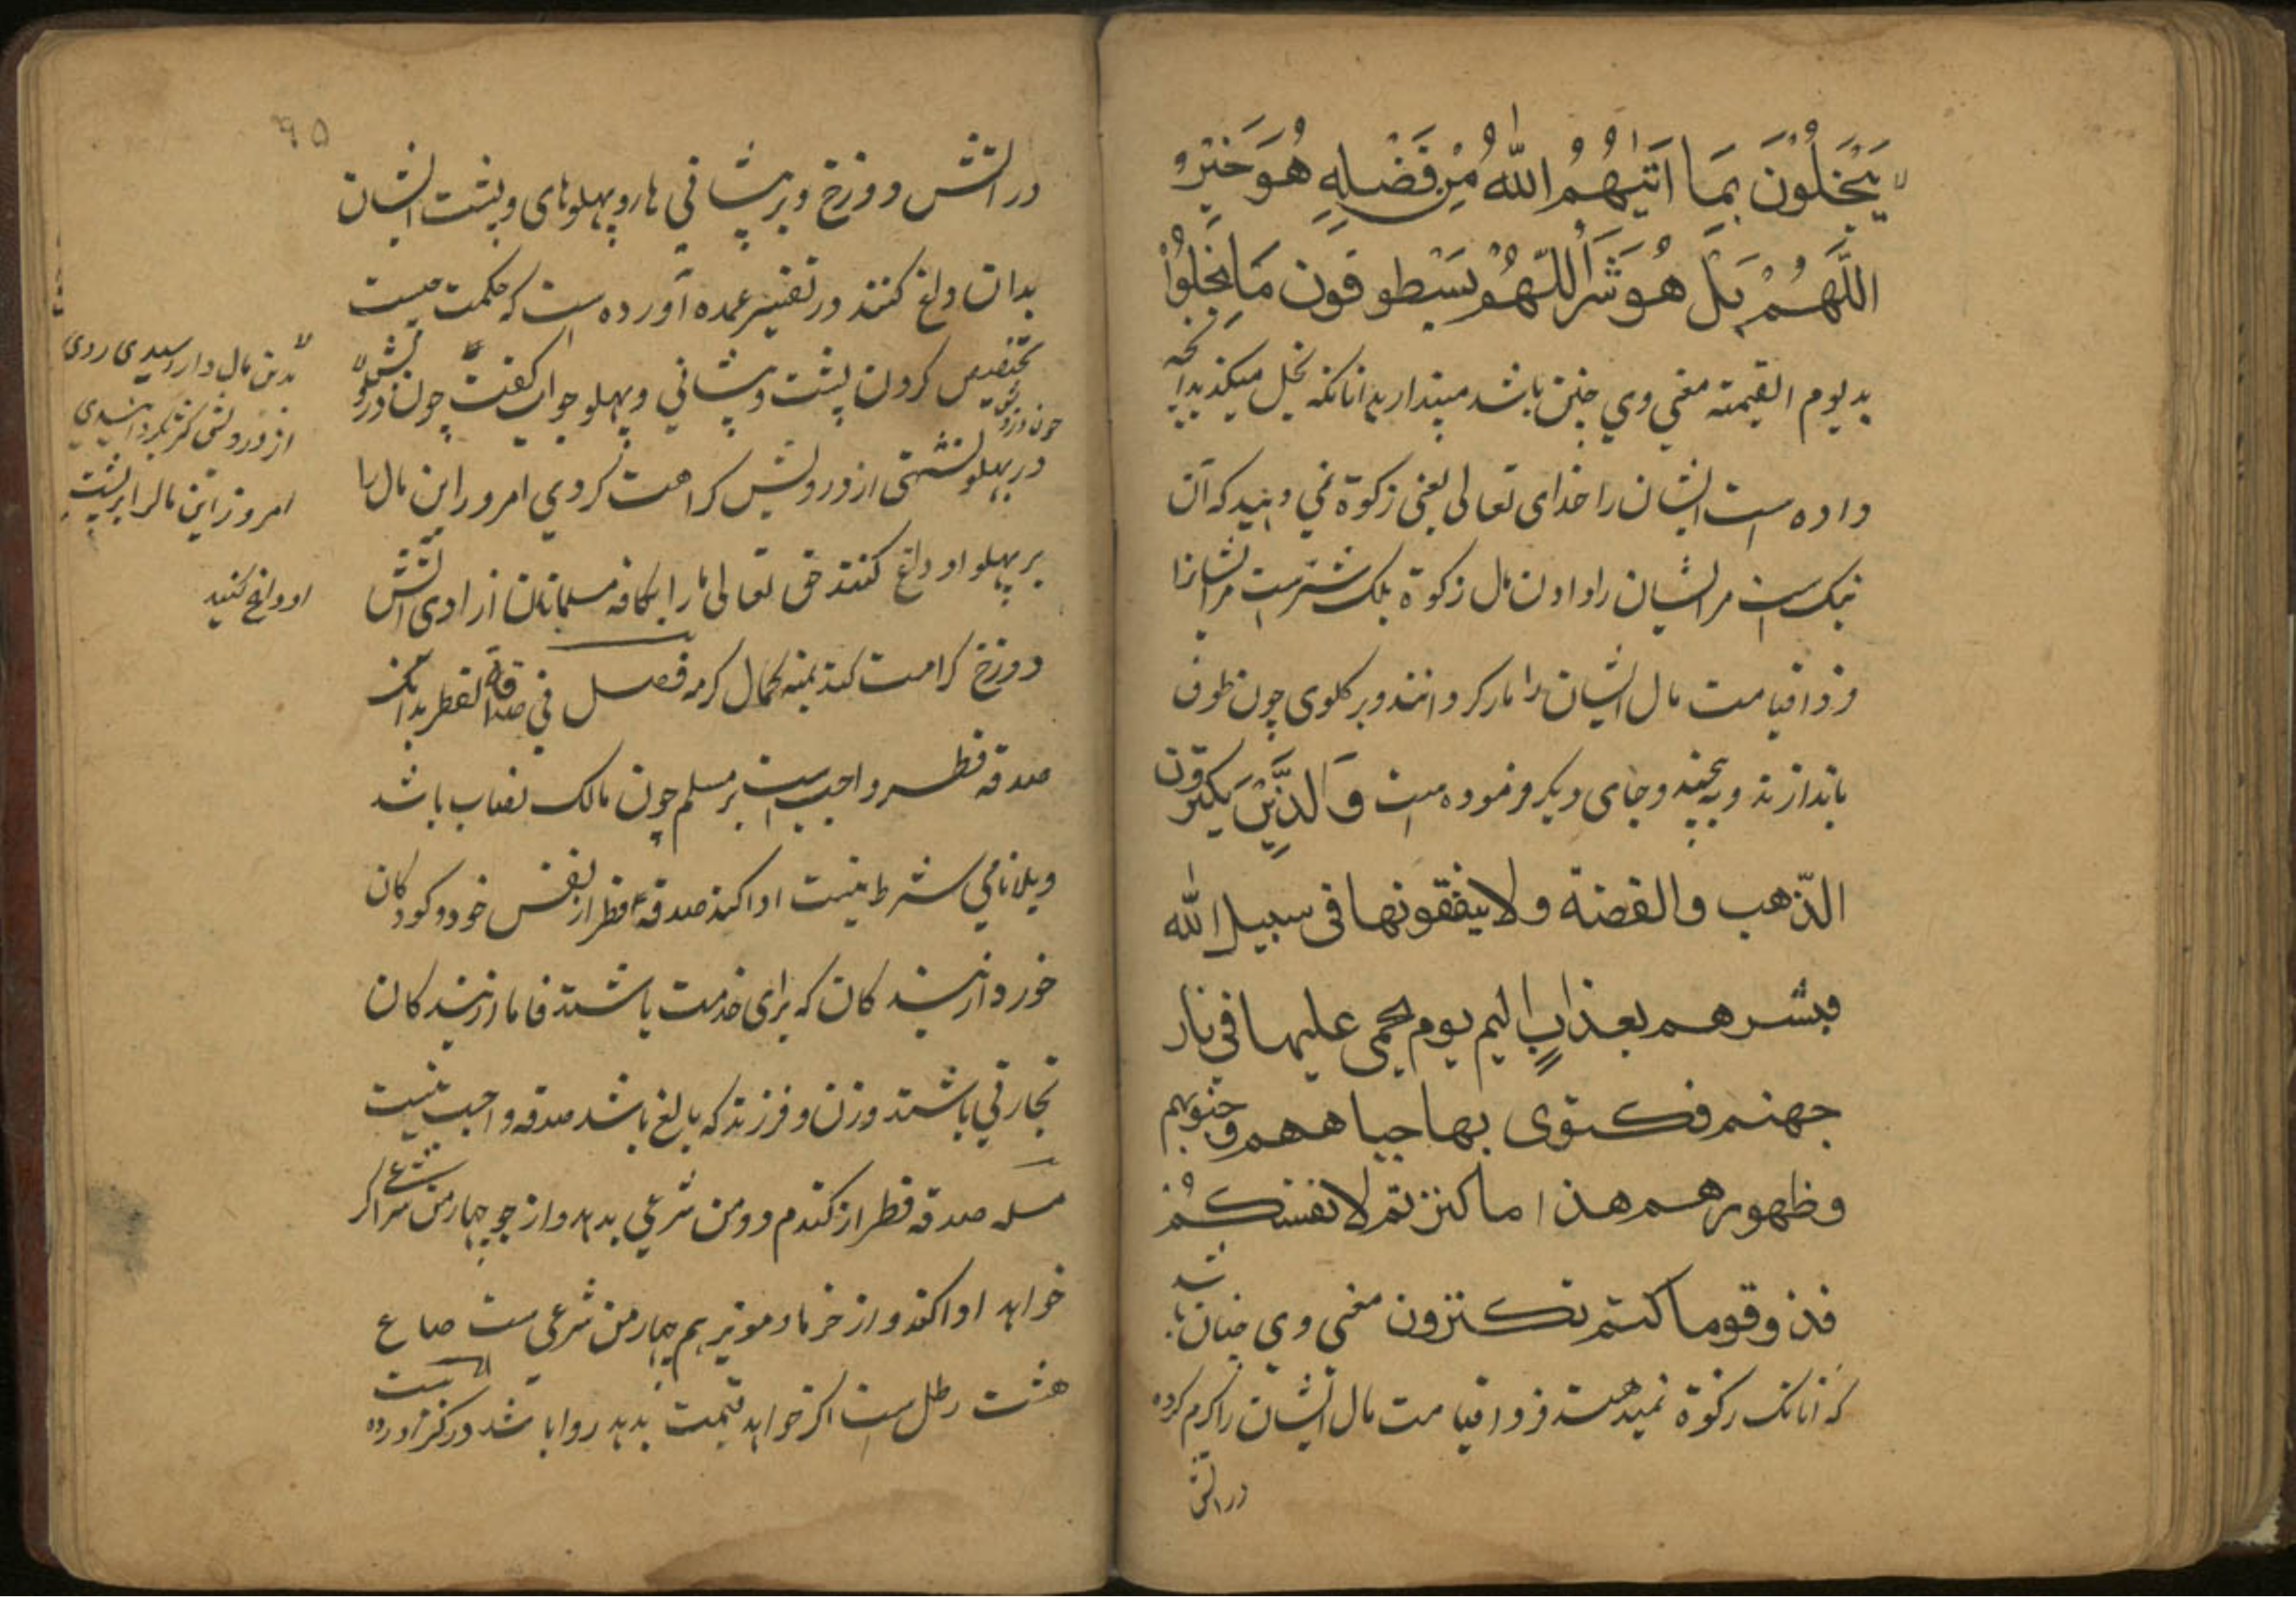 یَبْخَلُوْنَ بِمَا اٰتٰیهُمُ اللّٰهُ مِنْ فَضْلِهِ هُوَ خَیْرٌ
اللَّهُمْ بَلْ هُوَ شَرٌّ اللّهُمْ سَیطوقون مَا بَخِلُوْا
به لیوم القیمته معنی وی چنین باشد مپندارید انانکه بخل میکند بدانچه
داده است ایشان را خدای تعالی یعنی زکوة نمی دهید که آن
نیک است مر ایشان را دادن مال زکوة بلک شتر است مر ایشانرا
فردا قیامت مال ایشان را مار کردانند و بر کلوی چون طوق
باندازند و به پیچند و جای دیکر فرموده است وَالَّذِیْنَ یکنزون
الذهب والفضة ولا ینفقونها فی سبیل الله
فبشرهم بعذابٍ الیم یوم یحمی علیها فی نار
جهنم فکتوی بها جباههم وجنوبهم
وظهورهم هذا ما کنزتم لانفسکُم
فذوقوما کنتم تکنزون معنی وی چنان باشد
که انانک زکوة نمیدهند فردا قیامت مال ایشان را کرم کرده
در اتش
۹۵
در اتش دوزخ و بر پیشانی ها و پهلوهای و پشت ایشان
بدان داغ کنند در تفسیر عمده آورده است که حکمت چیست
تخصیص کردن پشت و پیشانی و پهلو جواب کفت چون درویش
در پهلو نشستی از درویش کراهت کردی امروز این مال را
بر پهلو او داغ کنند حق تعالی ما را با کافه مسلمانان از ادی اتش
دوزخ کرامت کند بمنه بکمال کرمه فصل فی صدقة الفطر بدانک
صدقه فطر واجب است بر مسلم چون مالک نصاب باشد
و بلا نامی شرط نیست ادا کند صدقهٔ فطر از نفس خود و کودکان
خورد و از بندکان که برای خدمت باشند فاما از بندکان
تجارتی باشند و زن و فرزند که بالغ باشد صدقه واجب نیست
مسله صدقه فطر از کندم دو من شرعی بدهد و از جو چهار من شرعی اکر
خواهد ادا کند و از خرما و مویز هم چهار من شرعی است صاع
هشت رطل است اکر خواهد قیمت بدهد روا باشد در کنز اورده است
بدین مال دار رسیدی روی
از درویش
امروز این مال را بر پشت
او داغ کنید